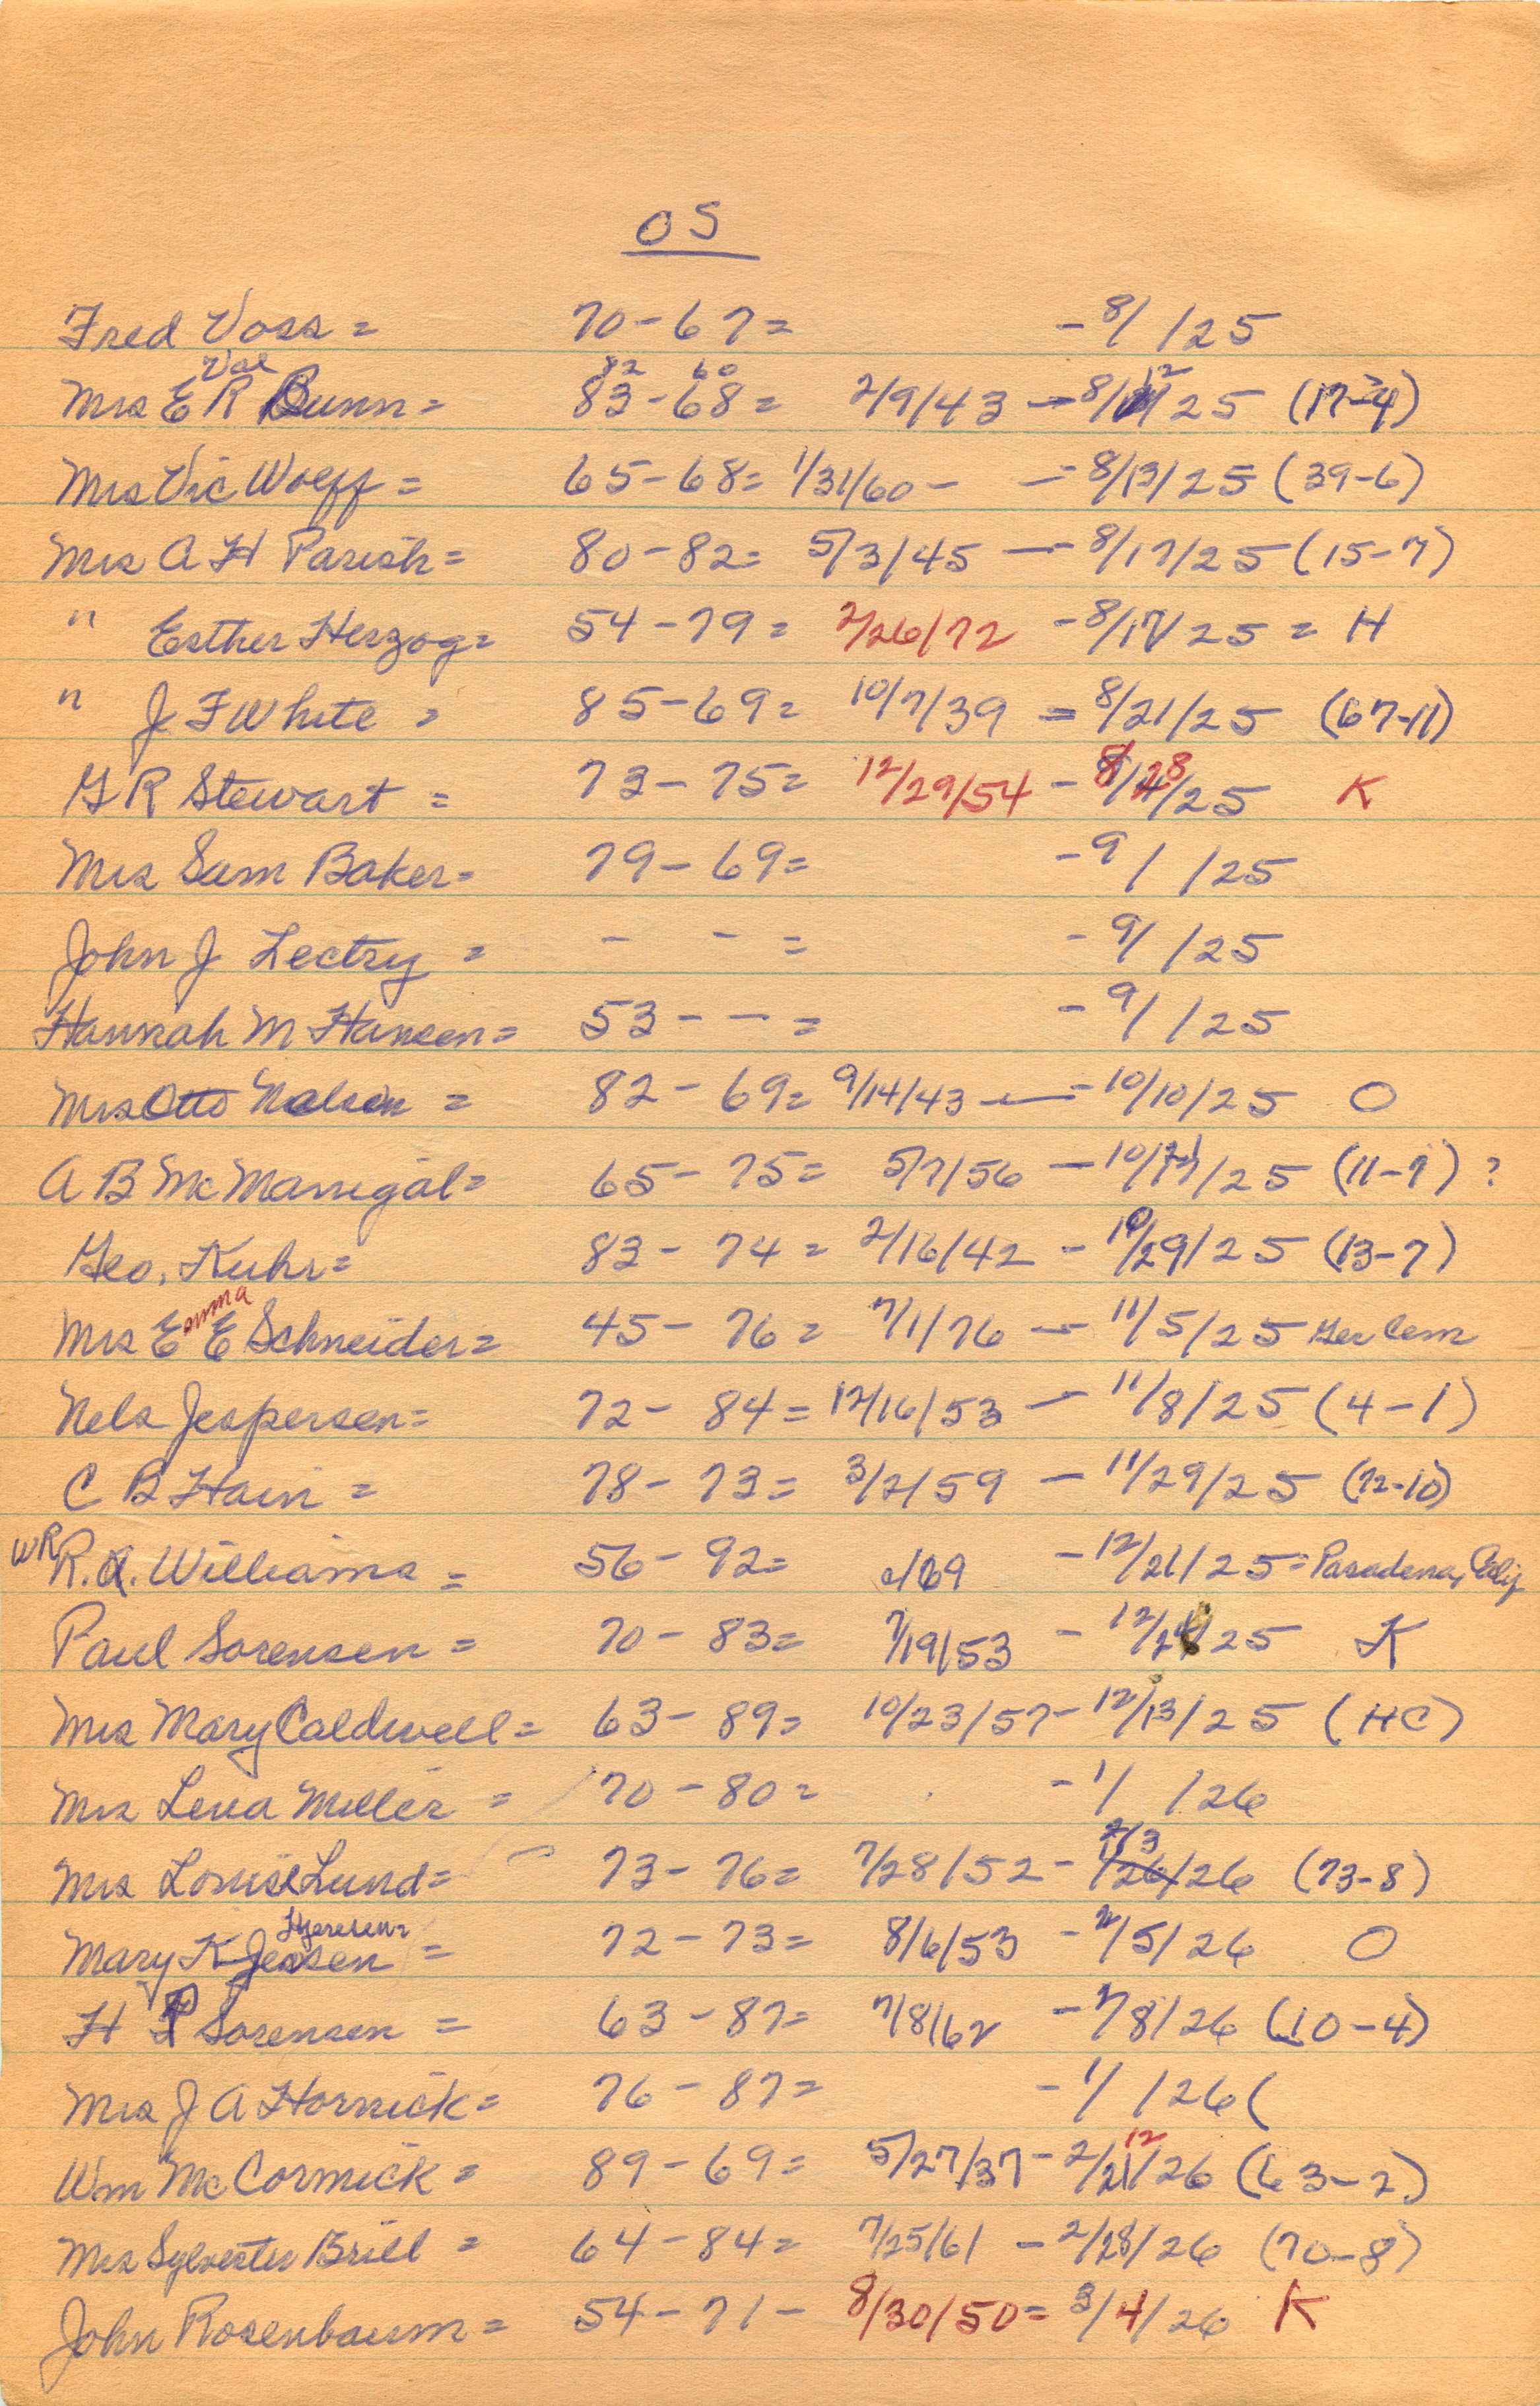 OS
Fred Voss = 70-67= -8/ /25
Val 82 60 12
Mrs E R Bunn= 83-68= 2/9/43 - 8/ /25 (17-4)
Mrs Vic Wolff = 65-68= 1/31/60- -8/13/25 (39-6)
Mrs A H Parish= 80-82= 5/3/45 - 8/17/25 (15-7)
" Esther Herzog= 54-79= 2/26/72 -8/17/25 = H
" J F White = 85-69= 10/7/39 = 8/21/25 (67-11)
G R Stewart = 73-75= 12/29/54 - 8/28/25 K
Mrs Sam Baker= 79-69= -9/ /25
John J Lectry = - - = -9/ /25
Hannah M Hansen= 53 - - = -9/ /25
Mrs Otto Nelson = 82-69= 9/14/43 - 10/10/25 O
A B McManigal= 65-75= 5/7/56 - 10/ /25 (11-7) ?
Geo. Kuhr= 83-74= 2/16/42 - 10/29/25 (13-7)
Mrs Emma E Schneider= 45-76= 7/1/76 - 11/5/25 Ger Cem
Nels Jespersen= 72-84= 12/16/53 - 11/8/25 (4-1)
C B Hain = 78-73= 3/2/59 - 11/29/25 (72-10)
WR R. . Williams = 56-92= /69 -12/21/25= Pasadena, Calif
Paul Sorensen = 70-83= 7/19/53 - 12/ /25 K
Mrs Mary Caldwell= 63-89= 10/23/57- 12/13/25 (HC)
Mrs Lena Miller = 70-80= -1/ /26
2/3
Mrs Louise Lund= 73-76= 7/28/52- 1/26/26 (73-8)
Hjeresen=
Mary K Jensen = 72-73= 8/6/53 -2/5/26 O
H P Sorensen = 63-87= 7/8/62 - /8/26 (10-4)
Mrs J A Hornick= 76-87= -1/ /26 (
12
Wm McCormick = 89-69= 5/27/37- 2/21/26 (63-2)
Mrs Sylvester Brill = 64-84= 7/25/61 - 2/28/26 (70-8)
John Rosenbaum= 54-71- 8/30/50= 3/4/26 K